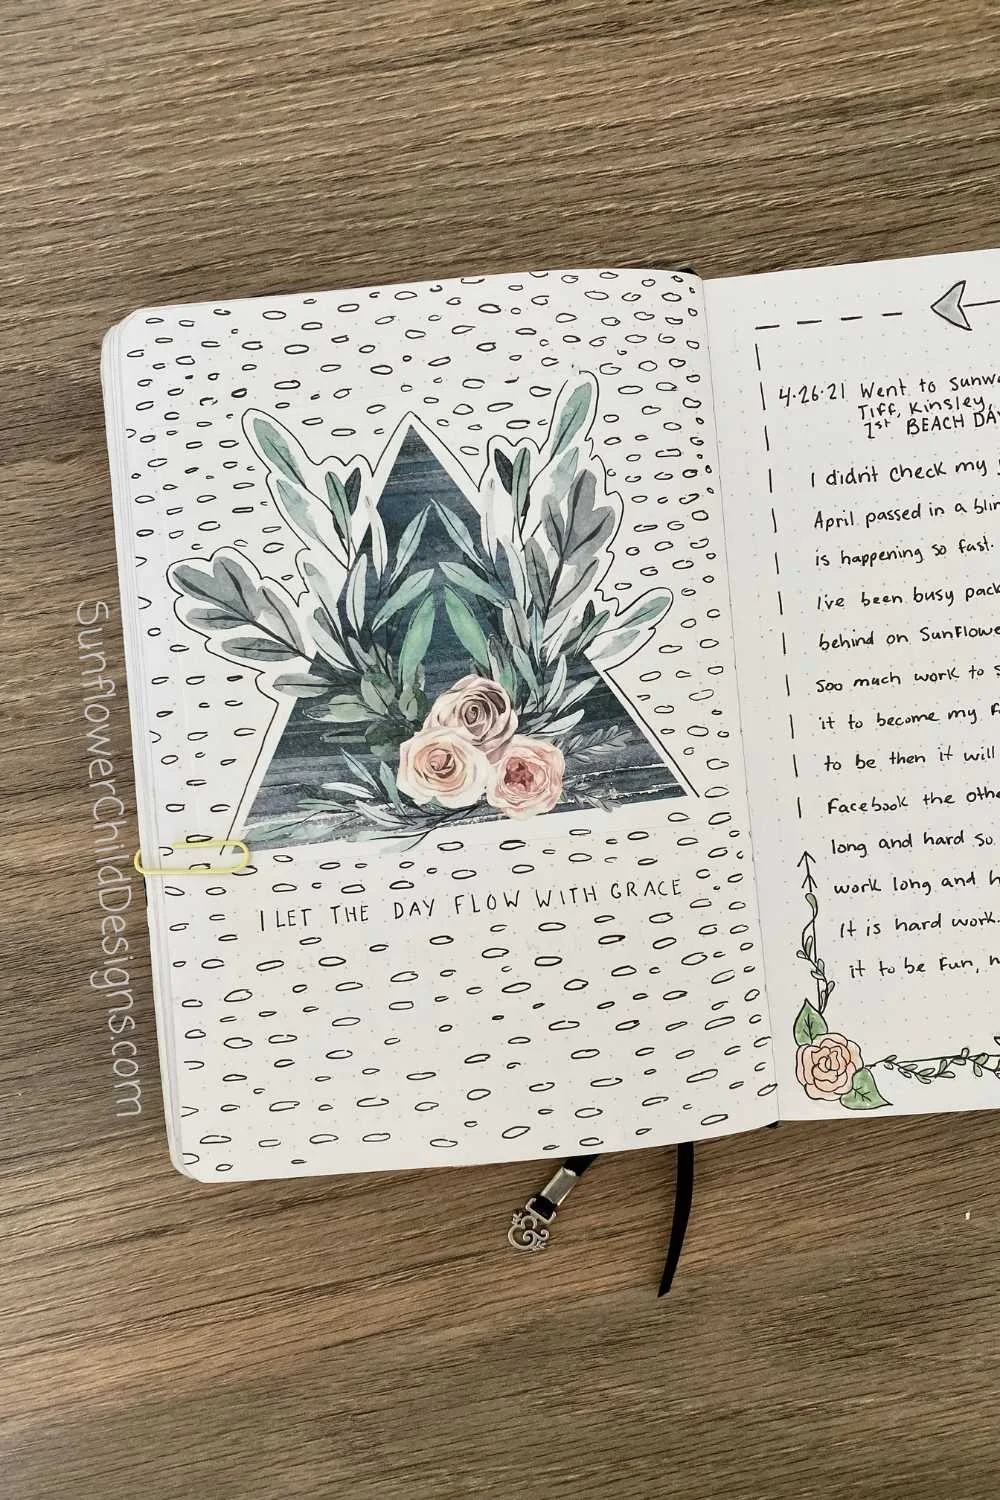 SunflowerChildDesigns.com
I LET THE DAY FLOW WITH GRACE
4.26.21 Went to
Tiff, Kinsley,
1st BEACH
I didn't check my
April passed in a
is happening so fast.
I've been busy
behind on
soo much work to
it to become my
to be then it will
Facebook the
long and hard so
work long and
It is hard work.
it to be fun,